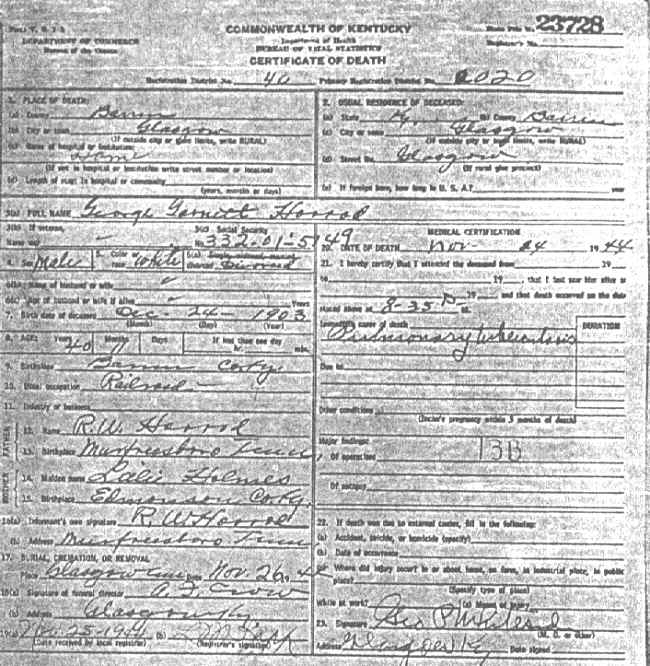 Form V. S. 1-A
DEPARTMENT OF COMMERCE
Bureau of the Census
COMMONWEALTH OF KENTUCKY
Department of Health
BUREAU OF VITAL STATISTICS
CERTIFICATE OF DEATH
State File No. 23728
Registrar's No.
Registration District No. 40 Primary Registration District No. 2020
1. PLACE OF DEATH:
(a) County Barren
(b) City or town Glasgow
(If outside city or town limits, write RURAL)
(c) Name of hospital or institution:
Home
(If not in hospital or institution write street number or location)
(d) Length of stay: In hospital or community
(years, months or days)
2. USUAL RESIDENCE OF DECEASED:
(a) State Ky. (b) County Barren
(c) City or town Glasgow
(If outside city or town limits, write RURAL)
(d) Street No. Glasgow
(If rural give precinct)
(e) If foreign born, how long in U. S. A.? year
3(a) FULL NAME George Garnett Harrod
3(b) If veteran,
Name war
3(c) Social Security
No. 332-01-5749
4. Sex Male 5. Color or race White 6(a) Single, widowed, married, divorced Divorced
6(b) Name of husband or wife
6(c) Age of husband or wife if alive Years
7. Birth date of deceased Dec- 24- 1903
(Month) (Day) (Year)
8. AGE: Years 40 Months 11 Days If less than one day
hr. min.
9. Birthplace Barren Co Ky.
10. Usual occupation Railroad
11. Industry or business
FATHER
12. Name R. W. Harrod
13. Birthplace Murfreesboro Tenn.
MOTHER
14. Maiden name Lalie Holmes
15. Birthplace Edmonson Co Ky.
16(a) Informant's own signature R. W. Harrod
(b) Address Murfreesboro Tenn
17. BURIAL, CREMATION, OR REMOVAL
Place Glasgow Cem Date Nov. 26 1944
18(a) Signature of funeral director A. F. Crow
(b) Address Glasgow Ky
19(a) Nov. 25 1944 (b)
(Date received by local registrar) (Registrar's signature)
MEDICAL CERTIFICATION
20. DATE OF DEATH Nov- 24 1944
21. I hereby certify that I attended the deceased from 19
to 19 , that I last saw him alive on
19 , and that death occurred on the date
stated above at 8-35 P m.
Immediate cause of death
Pulmonary tuberculosis
DURATION
Due to
Other conditions
(Include pregnancy within 3 months of death)
Major findings:
Of operations 13B
Of autopsy
22. If death was due to external causes, fill in the following:
(a) Accident, suicide, or homicide (specify)
(b) Date of occurrence
(c) Where did injury occur? in or about home, on farm, in industrial place, in public
place?
(Specify type of place)
While at work? (e) Means of injury
23. Signature Geo P.
(M. D. or other)
Address Glasgow Ky Date signed